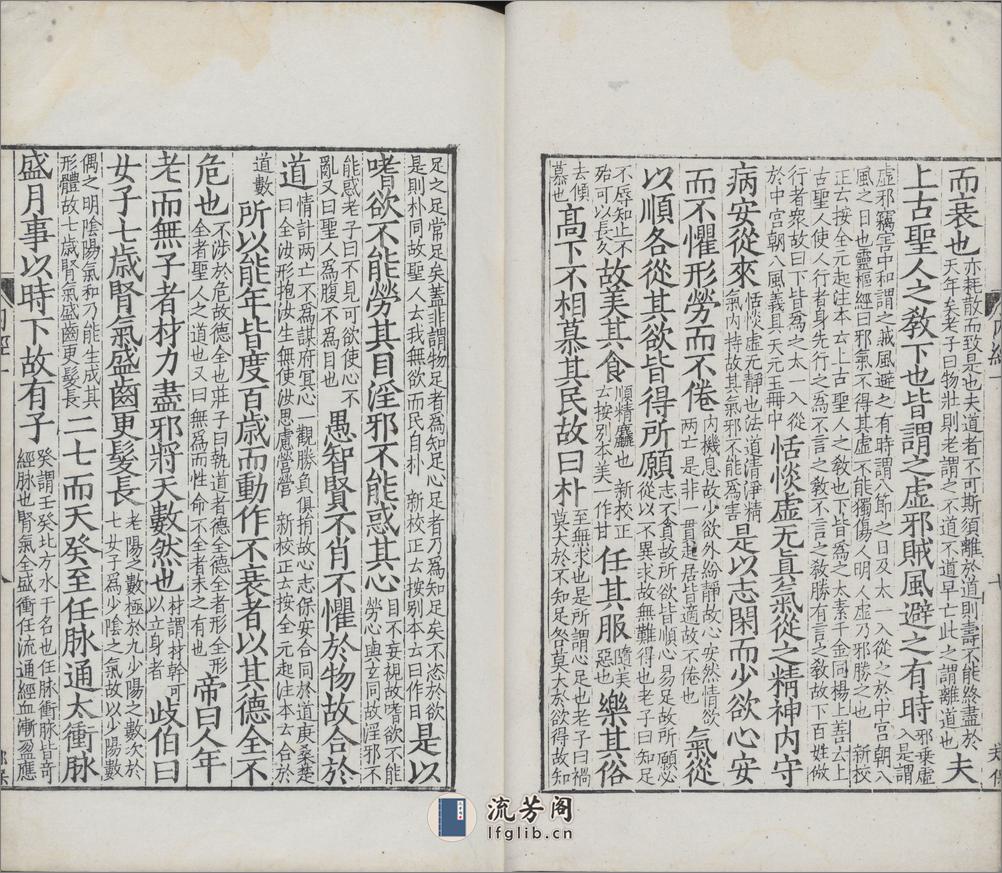 而衰也亦耗散而致是也夫道者不可斯須離於道則壽不能終盡於天年矣老子曰物壯則老謂之不道不道早亡此之謂離道也夫
上古聖人之教下也皆謂之虛邪賊風避之有時邪乗虛入是謂
虛邪竊害中和謂之賊風避之有時謂八節之日及太一入從之於中宮朝八風之日也靈樞經曰邪氣不得其虛不能獨傷人明人虛乃邪勝之也 新校
正云按全元起注本云上古聖人之教也下皆為之太素千金同楊上善云上古聖人使人行者身先行之為不言之教不言之教勝有言之教故下百姓倣
行者衆故曰下皆為之太一入從於中宮朝八風義具天元玉冊中恬惔虛无真氣從之精神内守
病安從來恬惔虛无靜也法道清淨精氣内持故其氣邪不能為害是以志閑而少欲心安
而不懼形勞而不倦内機息故少欲外紛靜故心安然情欲兩亡是非一貫起居皆適故不倦也氣從
以順各從其欲皆得所願志不貪故所欲皆順心易足故所願必從以不異求故無難得也老子曰知足
不辱知止不殆可以長久故美其食順精麤也 新校正云按别本美一作甘任其服隨美惡也樂其俗
去傾慕也高下不相慕其民故曰朴至無求也是所謂心足也老子曰禍莫大於不知足咎莫大於欲得故知
足之足常足矣蓋非謂物足者為知足心足者乃為知足矣不恣於欲是則朴同故聖人云我無欲而民自朴 新校正云按别本云曰作日是以
嗜欲不能勞其目淫邪不能惑其心目不妄視故嗜欲不能勞心與玄同故淫邪不
能惑老子曰不見可欲使心不亂又曰聖人為腹不為目也愚智賢不肖不懼於物故合於
道情計兩亡不為謀府冥心一觀勝負俱捐故心志保安合同於道庚桑楚曰全汝形抱汝生無使汝思慮營營 新校正云按全元起注本云合於
道數所以能年皆度百歳而動作不衰者以其德全不
危也不涉於危故德全也莊子曰執道者德全德全者形全形全者聖人之道也又曰無為而性命不全者未之有也帝曰人年
老而無子者材力盡邪將天數然也材謂材幹可以立身者歧伯曰
女子七歳腎氣盛齒更髮長老陽之數極於九少陽之數次於七女子為少陰之氣故以少陽數
偶之明陰陽氣和乃能生成其形體故七歳腎氣盛齒更髮長二七而天癸至任脉通太衝脉
盛月事以時下故有子癸謂壬癸北方水干名也任脉衝脉皆奇經脉也腎氣全盛衝任流通經血漸盈應
流芳阁
lfglib.cn